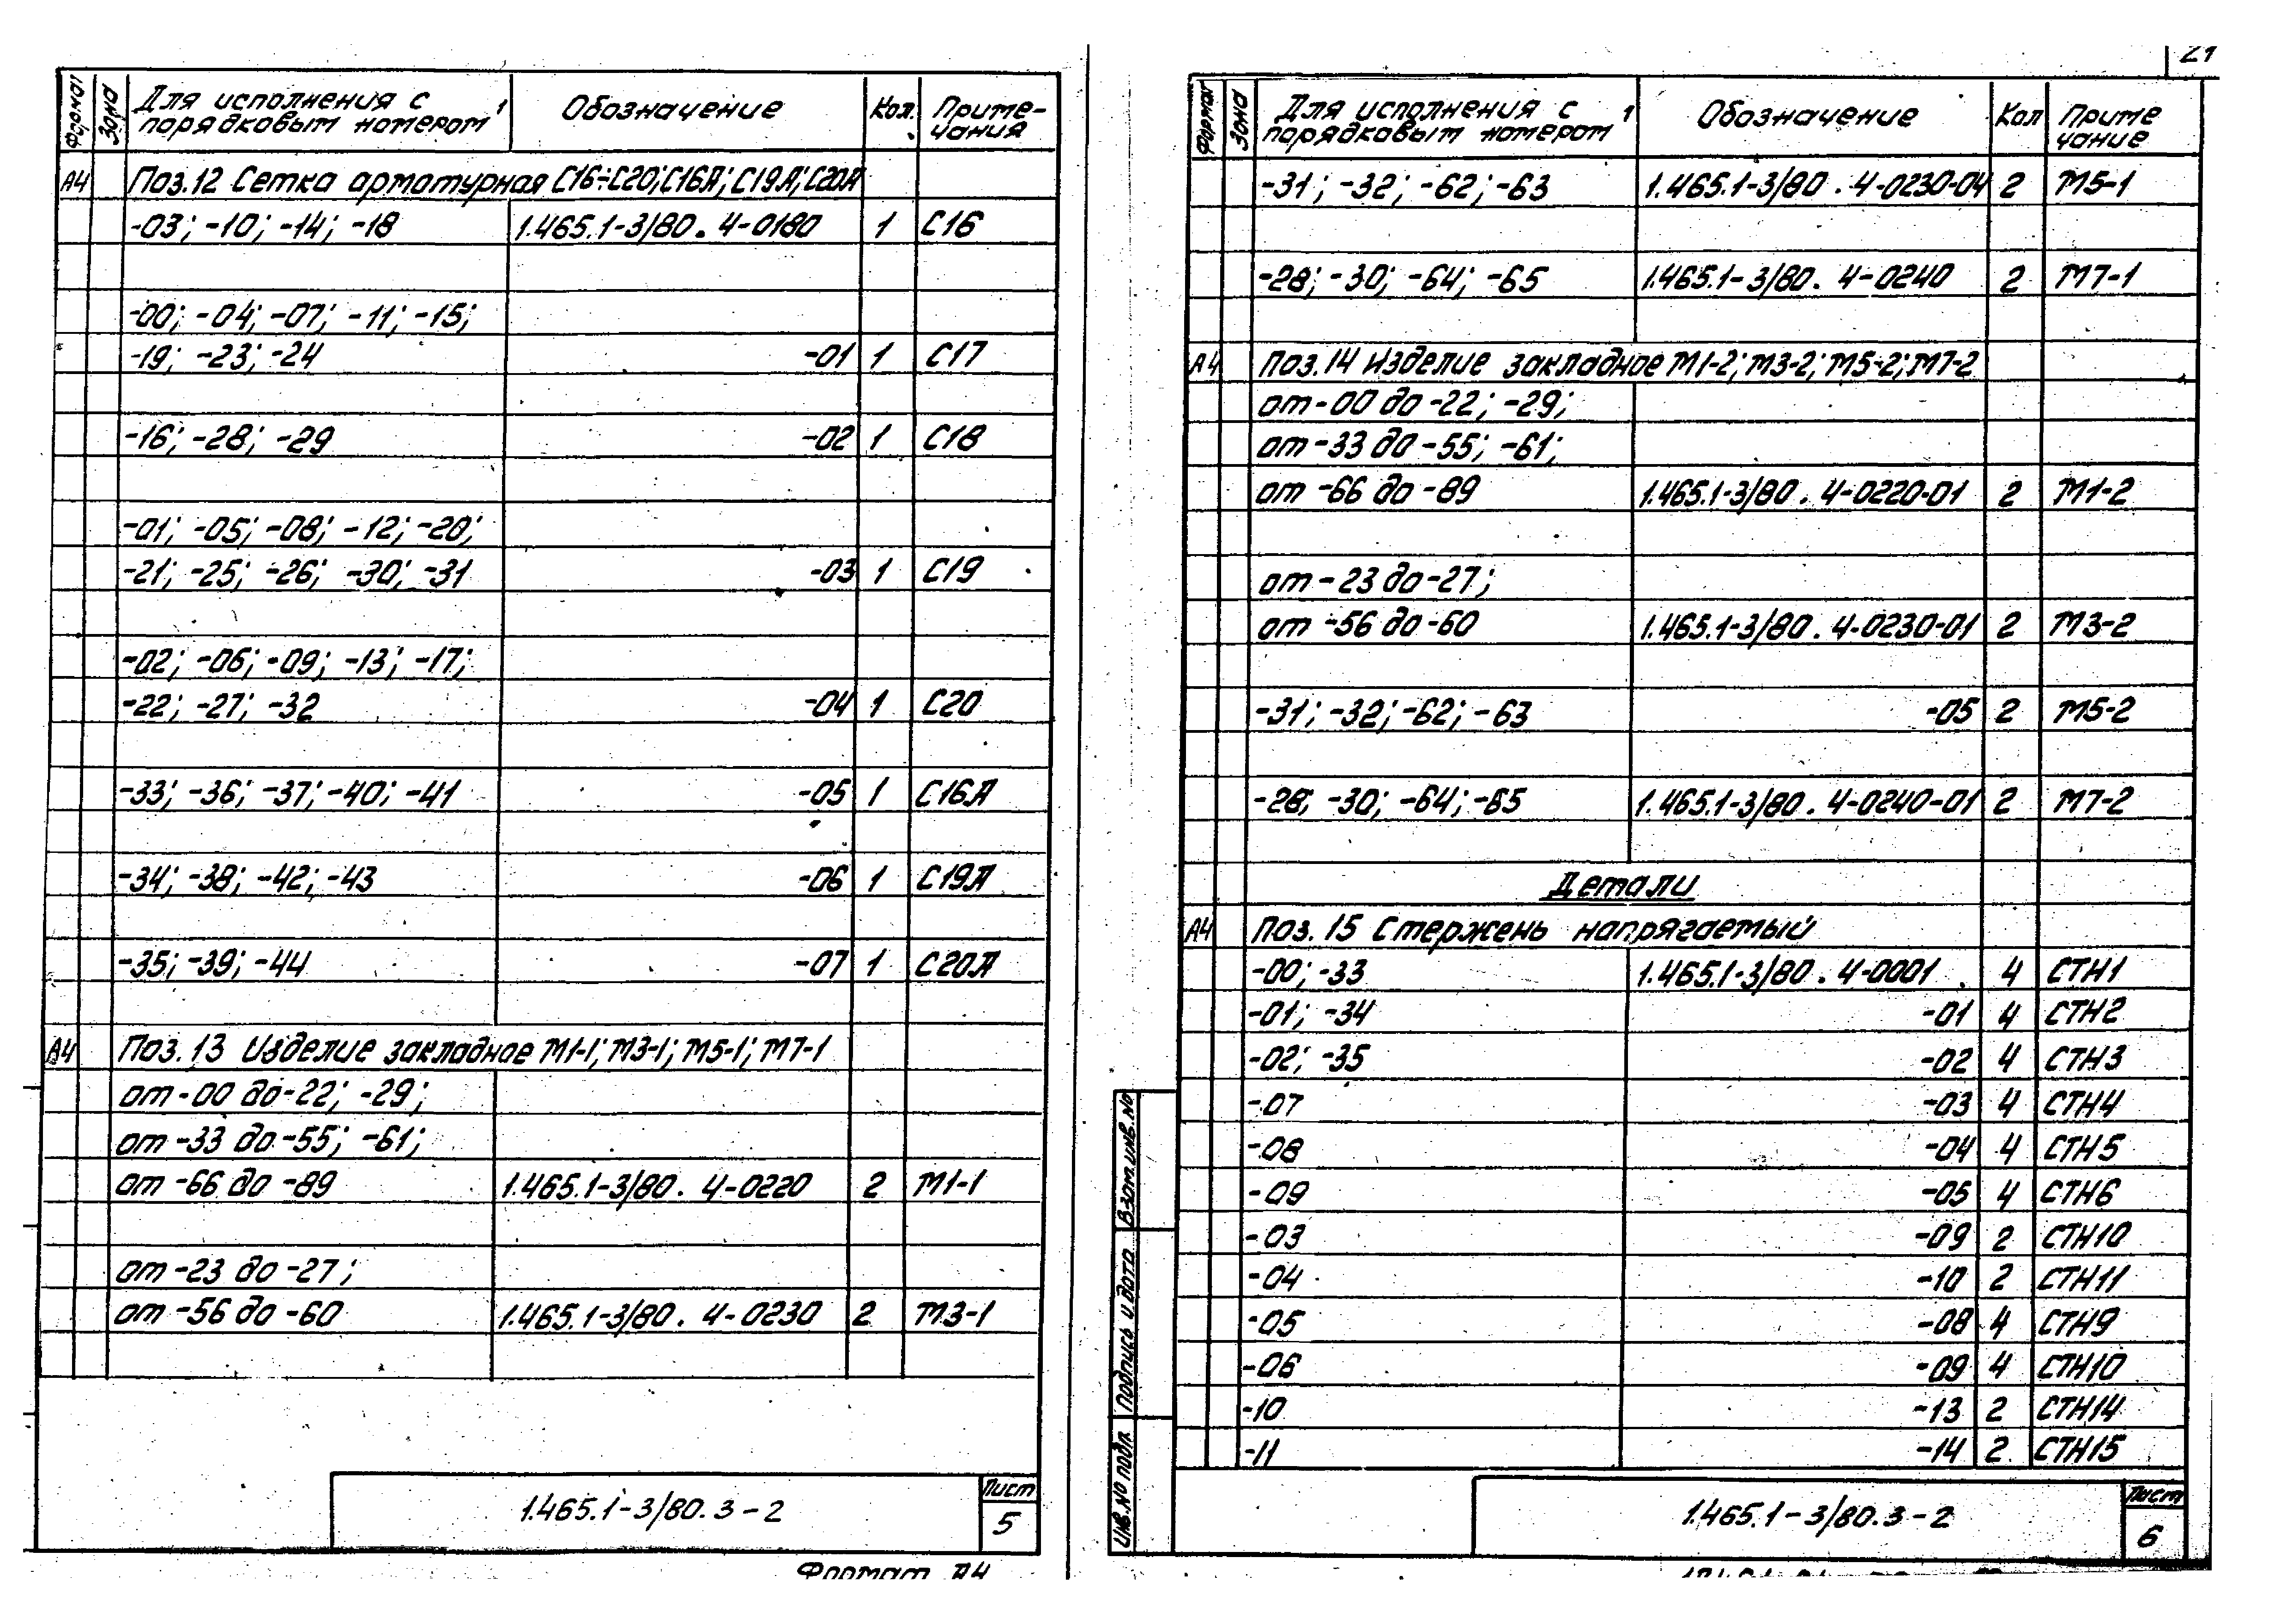 Формат Зона Для исполнения с порядковым номером 1 Обозначение Кол. Приме-чания
А4 Поз.12 Сетка арматурная С16÷С20; С16А; С19А; С20А
-03; -10; -14; -18 1.465.1-3/80. 4-0180 1 С16
-00; -04; -07; -11; -15;
-19; -23; -24 -01 1 С17
-16; -28; -29 -02 1 С18
-01; -05; -08; -12; -20;
-21; -25; -26; -30; -31 -03 1 С19
-02; -06; -09; -13; -17;
-22; -27; -32 -04 1 С20
-33; -36; -37; -40; -41 -05 1 С16А
-34; -38; -42; -43 -06 1 С19А
-35; -39; -44 -07 1 С20А
А4 Поз.13 Изделие закладное М1-1; М3-1; М5-1; М7-1
от -00 до -22; -29;
от -33 до -55; -61;
от -66 до -89 1.465.1-3/80. 4-0220 2 М1-1
от -23 до -27;
от -56 до -60 1.465.1-3/80. 4-0230 2 М3-1
1.465.1-3/80.3-2
Лист
5
Формат А4
21
Формат Зона Для исполнения с порядковым номером 1 Обозначение Кол Приме чание
-31; -32; -62; -63 1.465.1-3/80. 4-0230-04 2 М5-1
-28; -30; -64; -65 1.465.1-3/80. 4-0240 2 М7-1
А4 Поз.14 Изделие закладное М1-2; М3-2; М5-2; М7-2
от -00 до -22; -29;
от -33 до -55; -61;
от -66 до -89 1.465.1-3/80. 4-0220-01 2 М1-2
от -23 до -27;
от -56 до -60 1.465.1-3/80. 4-0230-01 2 М3-2
-31; -32; -62; -63 -05 2 М5-2
-28; -30; -64; -65 1.465.1-3/80. 4-0240-01 2 М7-2
Детали
А4 Поз.15 Стержень напрягаемый
-00; -33 1.465.1-3/80. 4-0001 4 СТН1
-01; -34 -01 4 СТН2
-02; -35 -02 4 СТН3
-07 -03 4 СТН4
-08 -04 4 СТН5
-09 -05 4 СТН6
-03 -09 2 СТН10
-04 -10 2 СТН11
-05 -08 4 СТН9
-06 -09 4 СТН10
-10 -13 2 СТН14
-11 -14 2 СТН15
Инв.№ подл. Подпись и дата Взам.инв.№
1.465.1-3/80.3-2
Лист
6